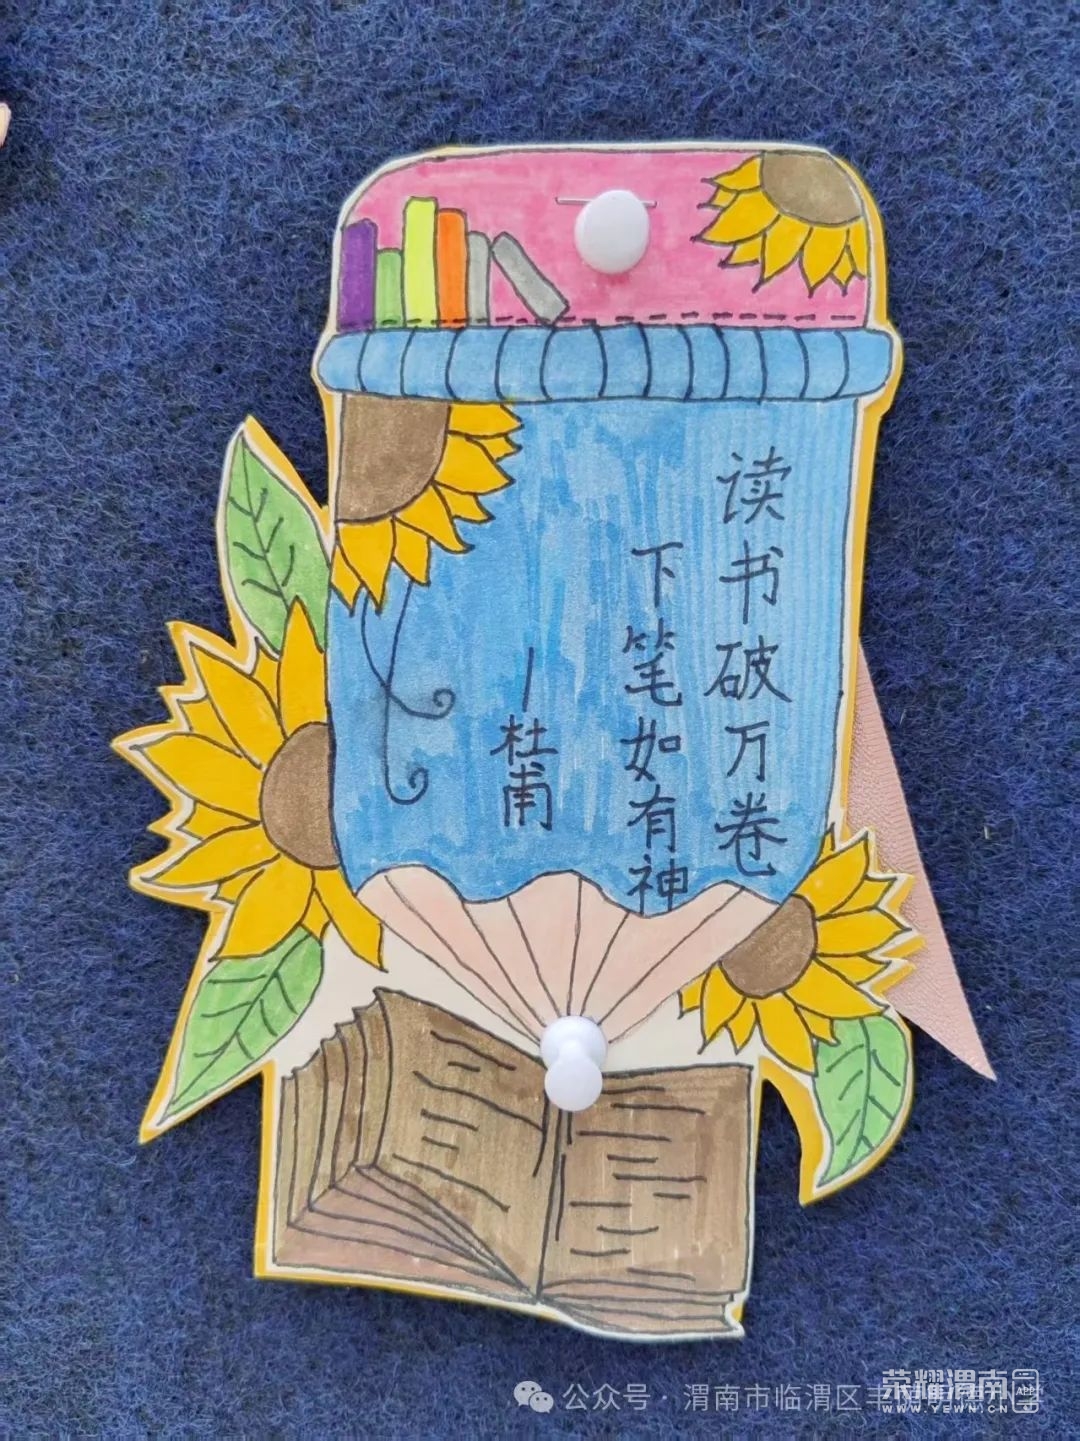 读书破万卷
下笔如有神
—杜甫
公众号·渭南市临渭区丰
荣耀渭南
APP
WWW.YEWN.CN